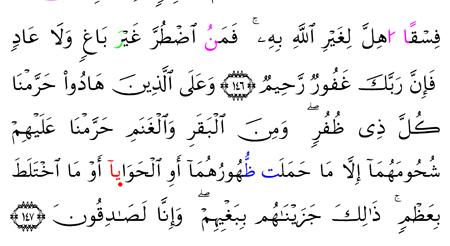 فِسْقًا ا۬هِلَّ لِغَيْرِ ٱللَّهِ بِهِۦۚ فَمَنُ ٱضْطُرَّ غَيْرَ بَاغٍ وَلَا عَادٍ
فَإِنَّ رَبَّكَ غَفُورٌ رَّحِيمٌ ﴿١٤٦﴾ وَعَلَى ٱلَّذِينَ هَادُوا۟ حَرَّمْنَا
كُلَّ ذِى ظُفُرٍۖ وَمِنَ ٱلْبَقَرِ وَٱلْغَنَمِ حَرَّمْنَا عَلَيْهِمْ
شُحُومَهُمَآ إِلَّا مَا حَمَلَت ظُّهُورُهُمَآ أَوِ ٱلْحَوَايَآ أَوْ مَا ٱخْتَلَطَ
بِعَظْمٍۚ ذَٰلِكَ جَزَيْنَـٰهُم بِبَغْيِهِمْۖ وَإِنَّا لَصَـٰدِقُونَ ﴿١٤٧﴾